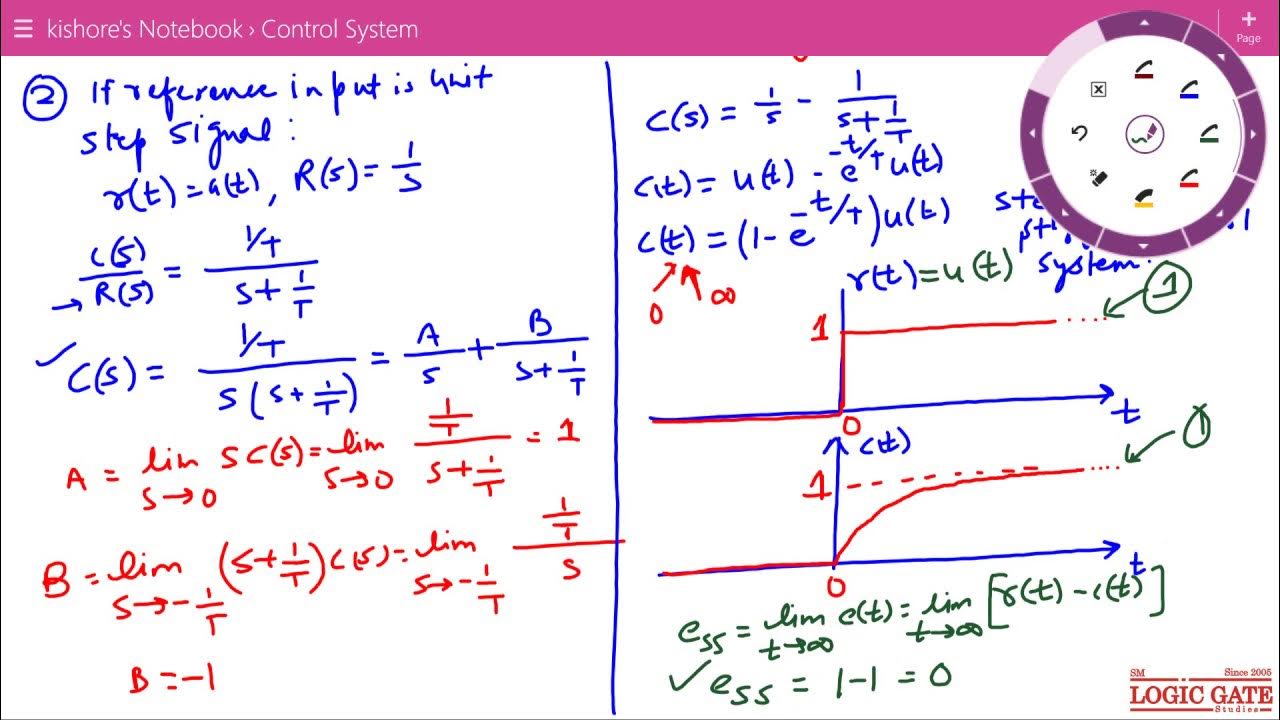 kishore's Notebook › Control System
Page
② If reference input is unit
step signal:
r(t) = u(t), R(s) = 1/s
→ C(s)/R(s) = (1/T)/(s + 1/T)
✓ C(s) = (1/T)/(s(s + 1/T)) = A/s + B/(s + 1/T)
A = lim s→0 s C(s) = lim s→0 (1/T)/(s + 1/T) = 1
B = lim s→-1/T (s + 1/T) C(s) = lim s→-1/T (1/T)/s
B = -1
C(s) = 1/s - 1/(s + 1/T)
c(t) = u(t) - e^(-t/T) u(t)
c(t) = (1 - e^(-t/T)) u(t)
0 ∞
system.
r(t) = u(t)
1
1
0
t
c(t)
1
1
0
t
e_ss = lim t→∞ e(t) = lim t→∞ [r(t) - c(t)]
✓ e_ss = 1 - 1 = 0
SM Since 2005
LOGIC GATE
Studies